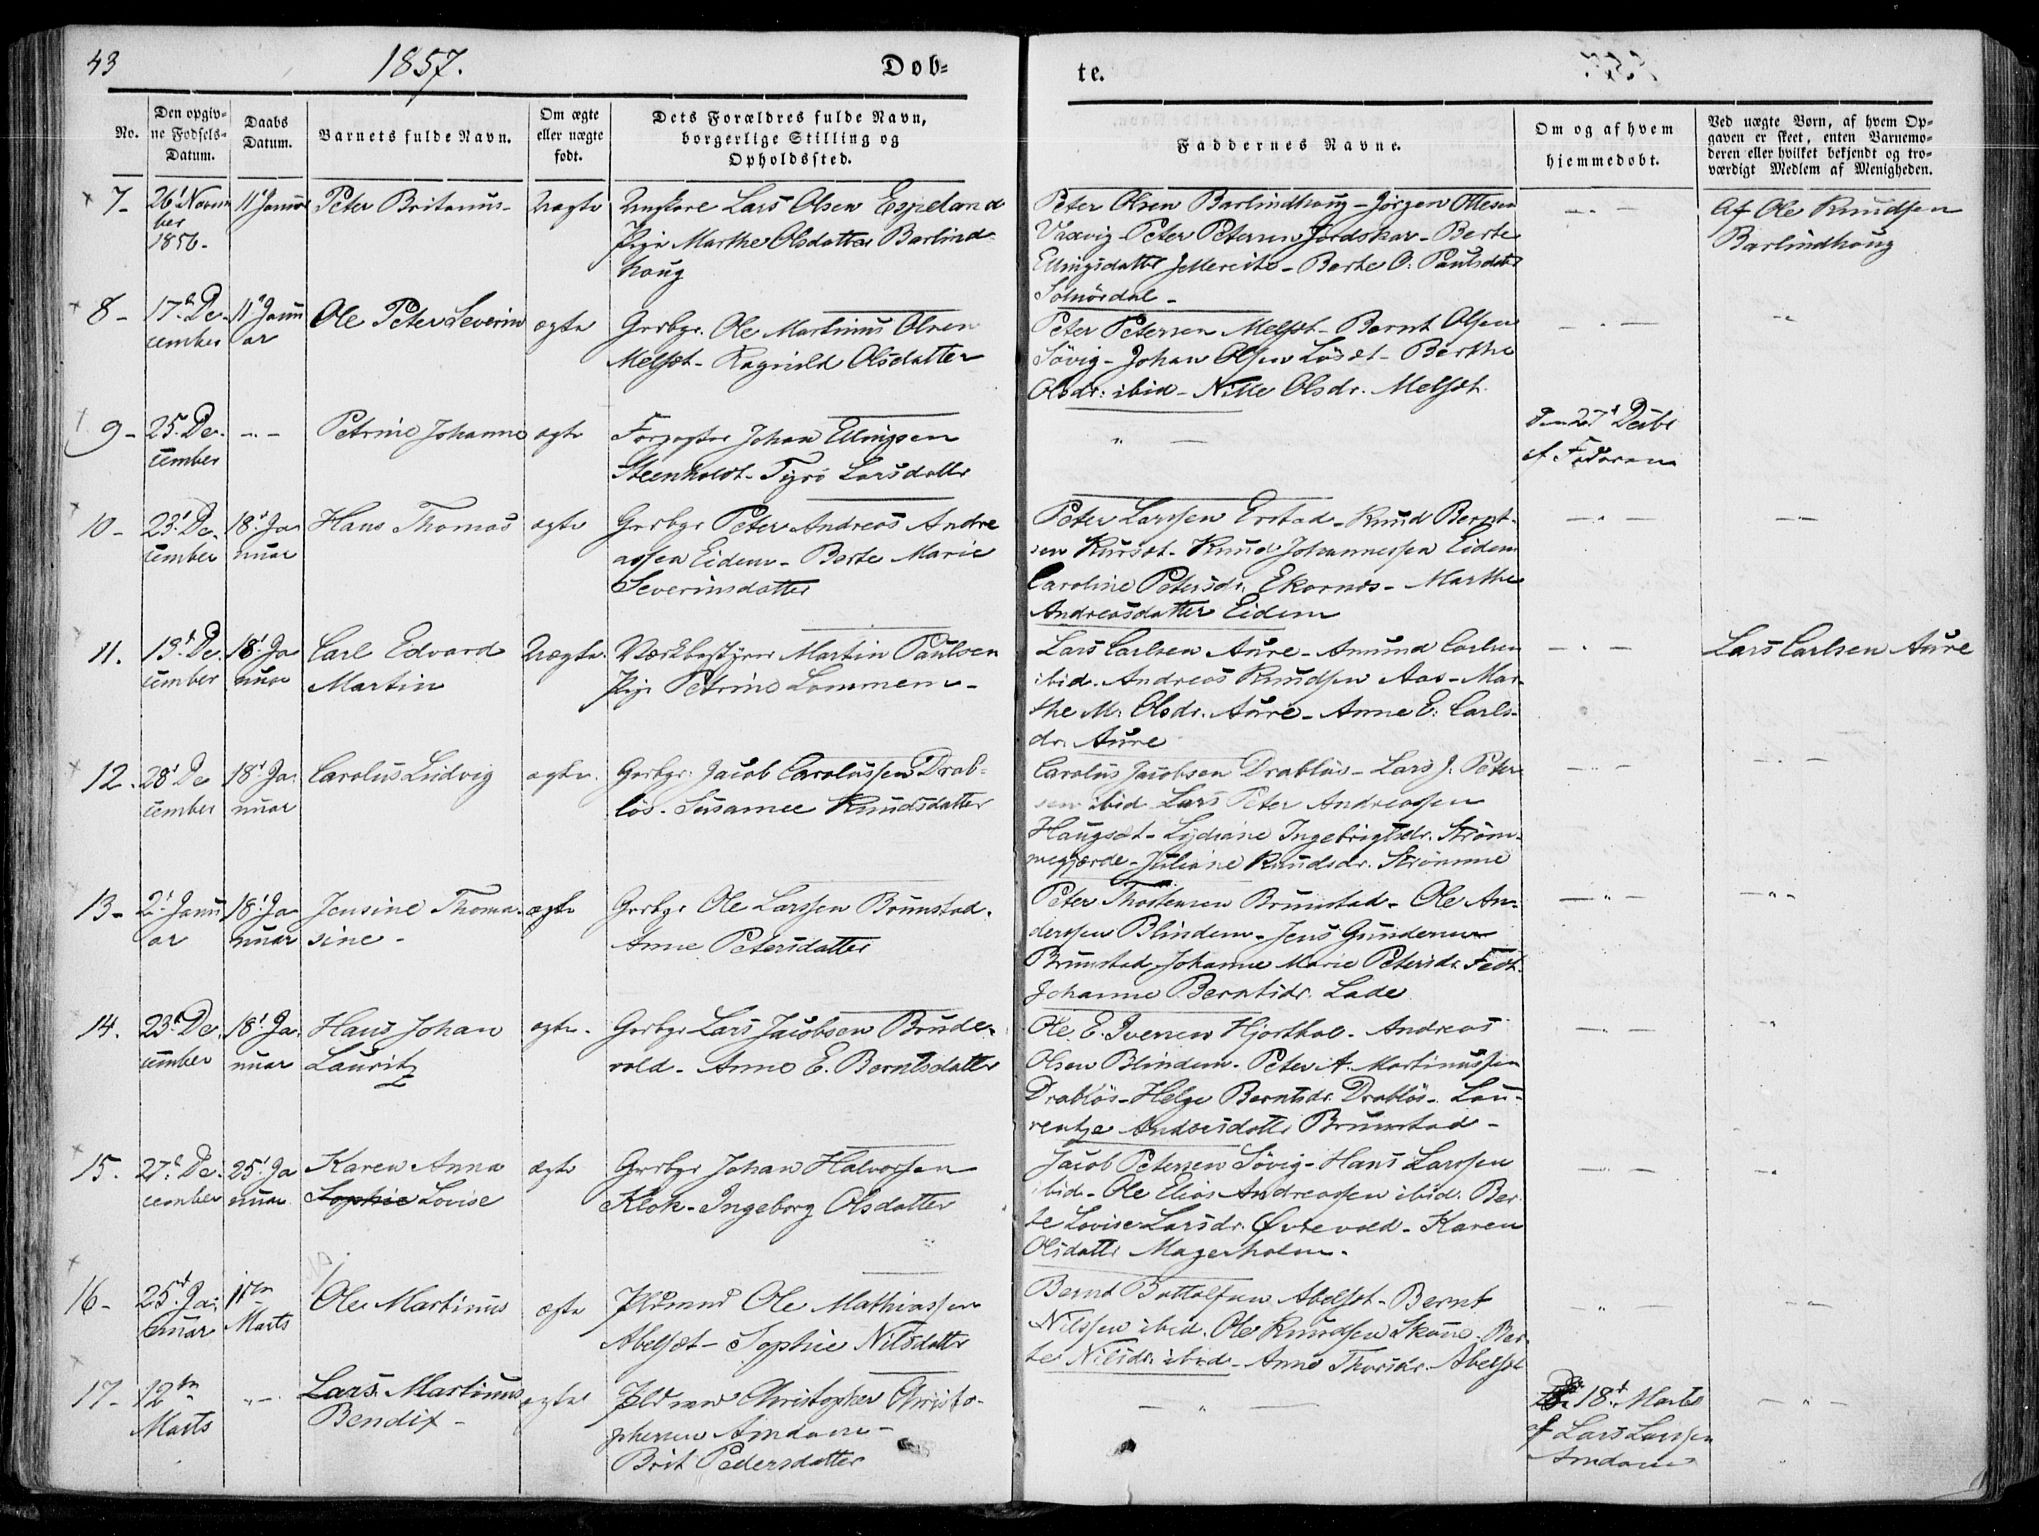 43
1857.
Døb-
te.
No.
Den opgiv-
ne Fødsels-
Datum.
Daabs
Datum.
Barnets fulde Navn.
Om ægte
eller uægte
født.
Dets Forældres fulde Navn,
borgerlige Stilling og
Opholdssted.
Faddernes Navne.
Om og af hvem
hjemmedøbt.
Ved uægte Børn, af hvem Op-
gaven er skeet, enten Barnemo-
deren eller hvilket bekjendt og tro-
værdigt Medlem af Menigheden.
7-
26' Novem
ber
1856-
11' Januar
Peter Britanus-
Uægte
Ungkare Lars Olsen Espeland
Pige Marthe Olsdatter Barlind-
houg
Peter Olsen Barlindhoug - Jørgen Ottesen
Vaxvig - Peter Petersen Jordskar - Berte
Ellingsdatter - Berte O: Paulsdatter
Solnördal -
Af Ole Knudsen
Barlindhoug
8-
17de De-
cember
11' Janu
ar
Ole Peter Severin
ægte
Grbgr. Ole Martinus Olsen
Melsæt - Ragnild Olsdatter
Peter Petersen Melsæt - Bernt Olsen
Søvig - Johan Olsen Løset - Berthe
Olsdr: ibid - Nille Olsdr. Melsæt.
9-
25. De-
cember
Petrine Johanne
ægte
Forpagter Johan Ellingsen
Steenholdt - Larsdatter
Den 27' Decbr
af Faderen
10-
23' De-
cember
18' Ja
nuar
Hans Thomas
ægte
Grbgr Peter Andreas Andre
assen Eidem - Berte Marie
Severinsdatter
Peter Larssen Erstad - Knud Bernt-
sen Kursæt - Knud Johannessen Eidem
Caroline Petersdr. Ekornes - Marthe
Andreasdatter Eidem
11.
13' De-
cember
18' Ja
nuar
Carl Edvard
Martin
Uægte.
Værkbestyrer Martin Paulsen
Pige Petrine Lommem -
Lars Carlsen Aure - Amund Carlsen
ibid. Andreas Knudsen Aas - Mar-
the M: Olsdr. Aure - Anne E: Carls-
dr. Aure
Lars Carlsen Aure
12.
28' De
cember
18' Ja
nuar
Carolus Ludvig
ægte.
Grbgr. Jacob Carolussen Drab-
løs - Susanne Knudsdatter
Carolus Jacobsen Drabløs - Lars J. Peter
sen ibid Lars Peter Andreassen
Haugset - Lydiane Ingebrigtsdr. Strøm-
megjærde - Juliane Knudsdr. Strømme
13-
2' Janu
ar
18' Ja
nuar
Jensine Thoma-
sine -
ægte
Grbgr Ole Larssen Brunstad.
Anne Petersdatter
Peter Thorstensen Brunstad - Ole An-
derssen Blindem - Jens Gundersen
Brunstad Johanne Marie Petersdr. Fedt.
Johanne Berntsdr. Lade
14.
23' De
cember
18' Ja
nuar
Hans Johan
Lauritz
ægte.
Grbgr Lars Jacobsen Brude-
vold - Anne E. Berntsdatter
Ole. E. Iversen Hjorthol - Andreas
Olsen Blindem - Peter A. Martinussen
Drabløs - Helge Berntsdr. Drabløs - Lau-
rentze Andersdatter Brunstad -
15.
27' De
cember
25' Ja
nuar
Karen Anna
Sophie Lovise
ægte
Grbgr Johan Halvorsen
Klok - Ingeborg Olsdatter
Jacob Petersen Søvig - Hans Larssen
ibid - Ole Elias Andreassen ibid. Ber
te Lovise Larsdr. Øvrevold - Karen
Olsdatter Magerholm -
16-
25' Ja-
nuar
Marts
Ole Martinus
ægte
Pldsmnd Ole Mathiassen
Abelsæt - Sophie Nilsdatter
Bernt Bottolfsen Abelsæt - Bernt
Nilssen ibid. Ole Knudsen Skaue - Ber-
te Nilsdr. ibid - Anne Thorsdr. Abelsæt
17-
12te
Marts
Lars Martinus
Bendix -
ægte
Pldsmnd Christopher Christo-
phersen Amdam -
Brit Pedersdatter
18' Marts
af Lars Larssen
Amdam